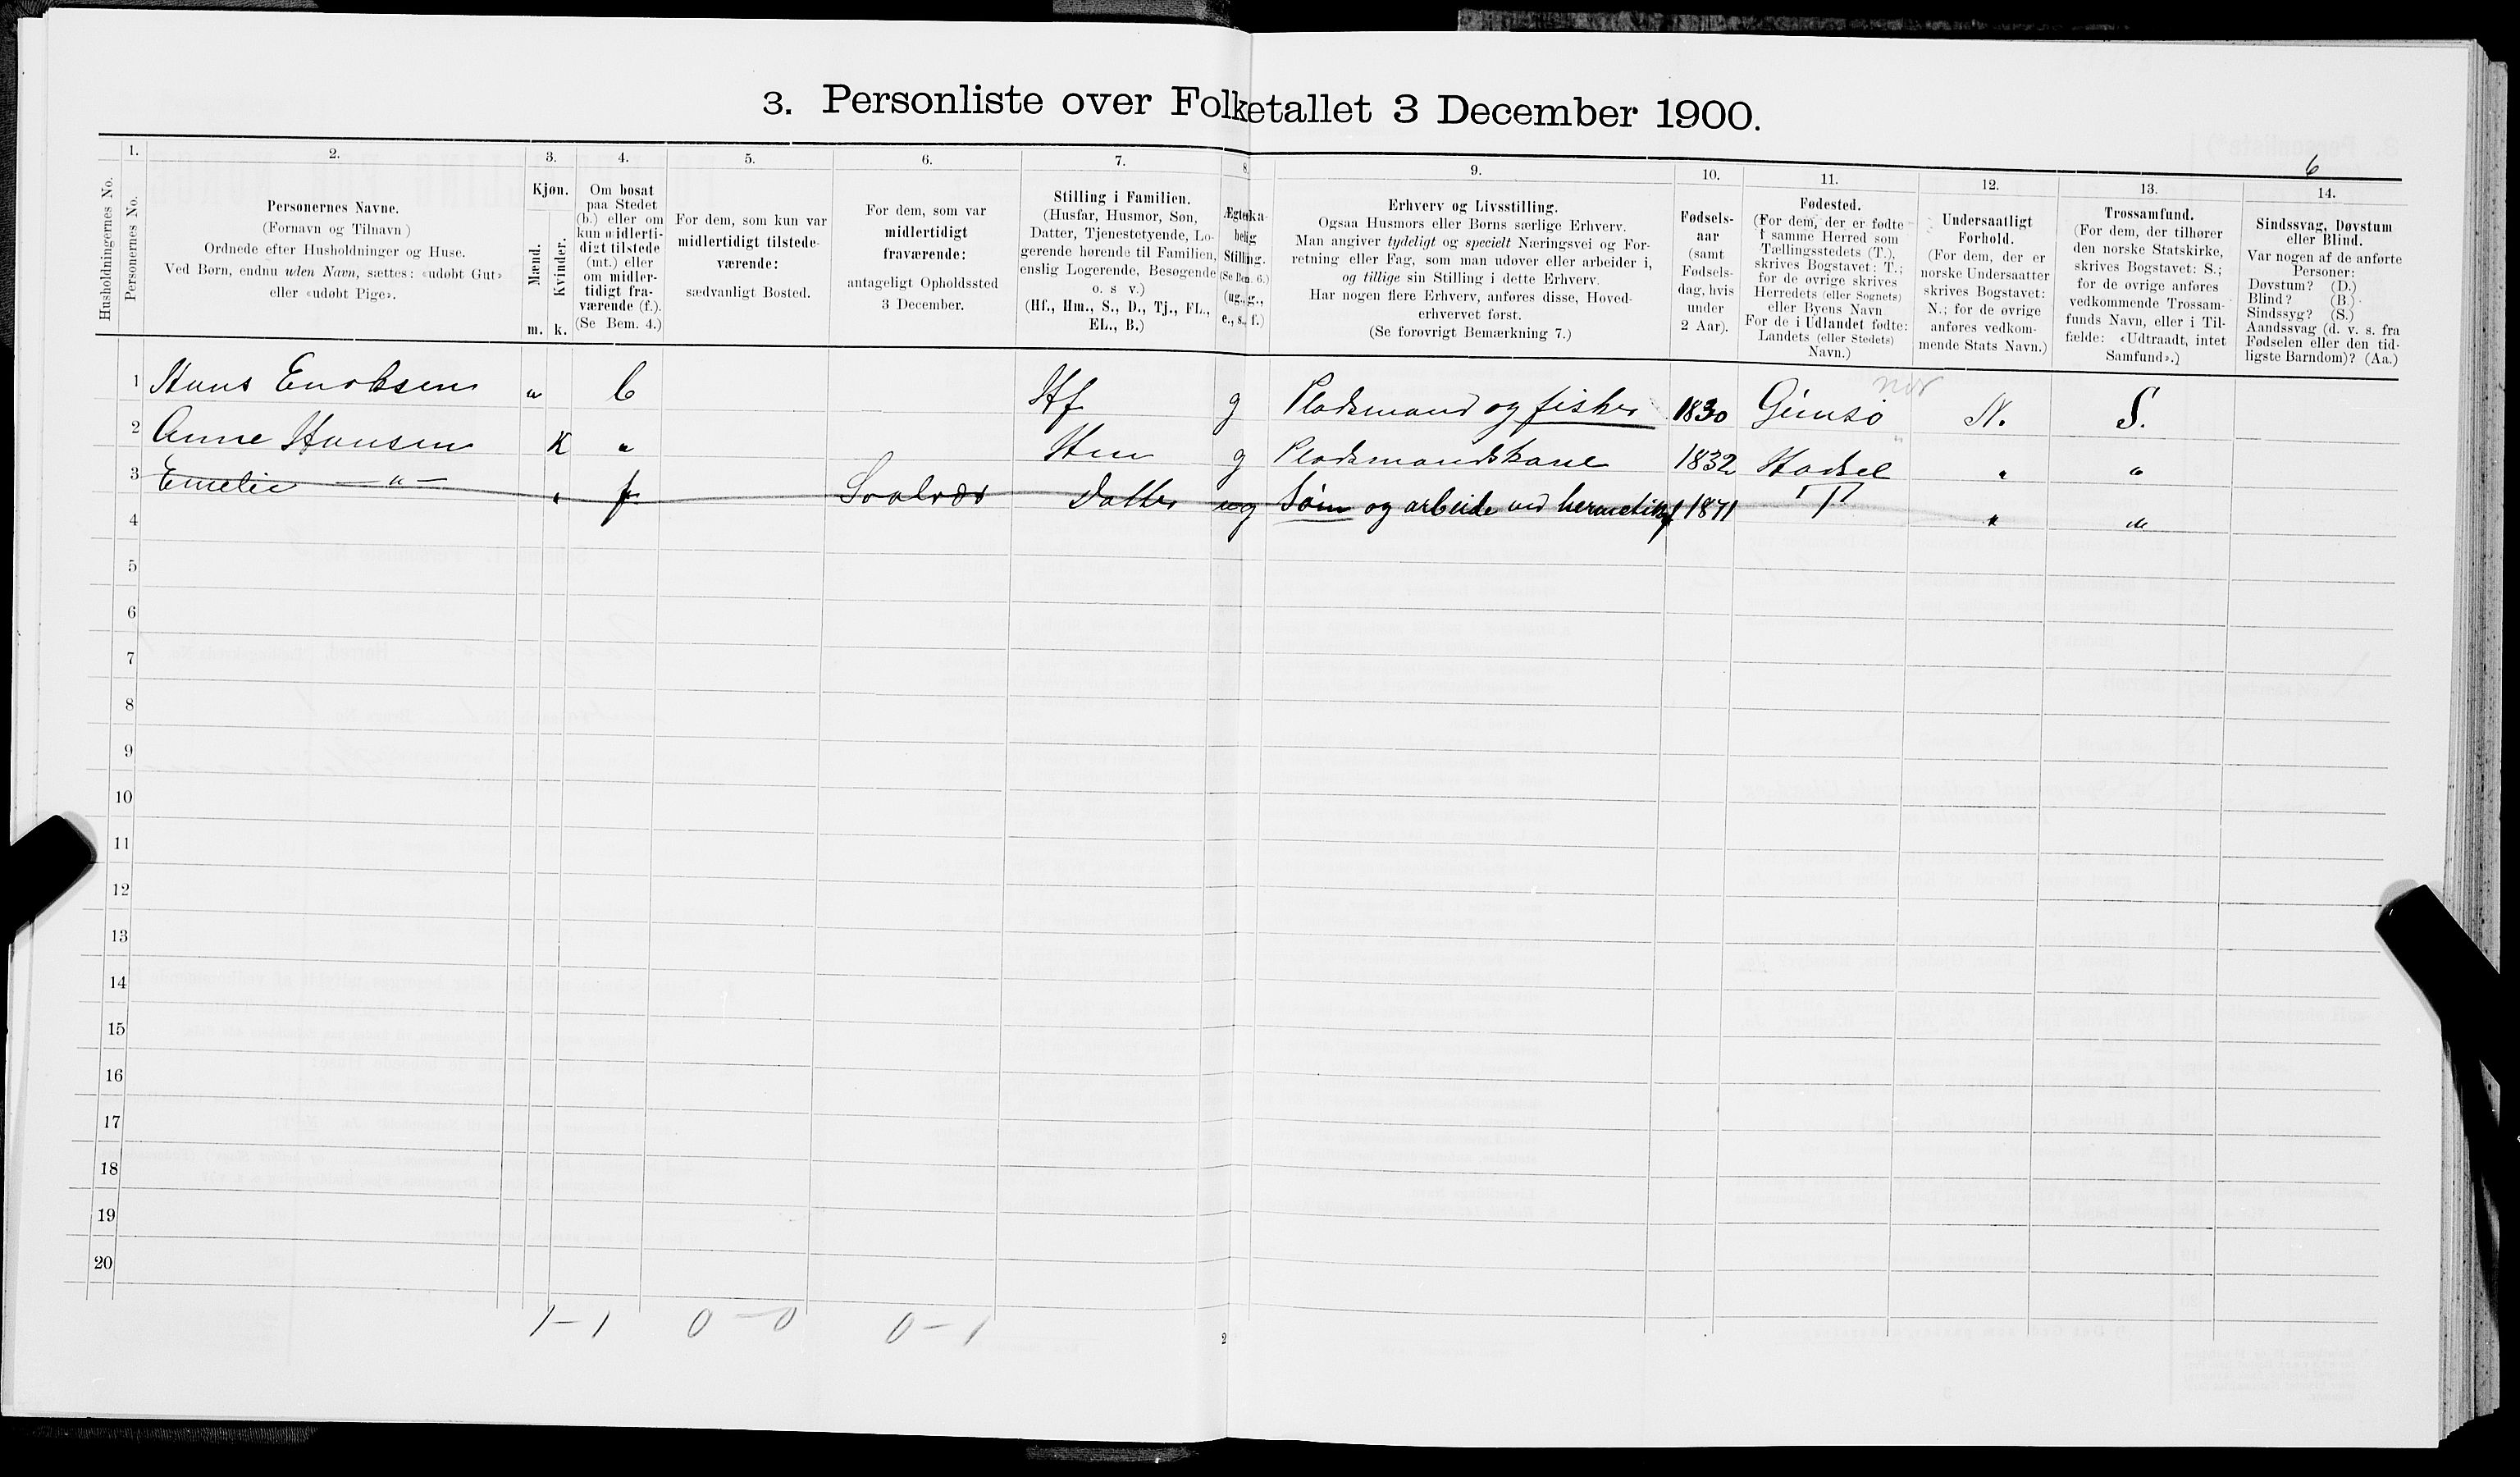 3. Personliste over Folketallet 3 December 1900.
6
1. 2. 3. 4. 5. 6. 7. 8. 9. 10. 11. 12. 13. 14.
Husholdningernes No.
Personernes No.
Personernes Navne.
(Fornavn og Tilnavn)
Ordnede efter Husholdninger og Huse.
Ved Børn, endnu uden Navn, sættes: «udøbt Gut»
eller «udøbt Pige».
Kjøn.
Mænd.
Kvinder.
m. k.
Om bosat
paa Stedet
(b.) eller om
kun midlerti-
digt tilstede
(mt.) eller
om midler-
tidigt fra-
værende (f.).
(Se Bem. 4.)
For dem, som kun var
midlertidigt tilstede-
værende:
sædvanligt Bosted.
For dem, som var
midlertidigt
fraværende:
antageligt Opholdssted
3 December.
Stilling i Familien.
(Husfar, Husmor, Søn,
Datter, Tjenestetyende, Lo-
gerende hørende til Familien,
enslig Logerende, Besøgende
o. s v.)
(Hf., Hm., S., D., Tj., FL.,
EL., B.)
Ægteska-
belig
Stilling.
(Se Bem. 6.)
(ug., g.,
e., s., f.)
Erhverv og Livsstilling.
Ogsaa Husmors eller Børns særlige Erhverv.
Man angiver tydeligt og specielt Næringsvei og For-
retning eller Fag, som man udøver eller arbeider i,
og tillige sin Stilling i dette Erhverv.
Har nogen flere Erhverv, anføres disse, Hoved-
erhvervet først.
(Se forøvrigt Bemærkning 7.)
Fødsels-
aar
(samt
Fødsels-
dag, hvis
under
2 Aar).
Fødested.
(For dem, der er fødte
i samme Herred som
Tællingsstedets (T.),
skrives Bogstavet: T.;
for de øvrige skrives
Herredets (eller Sognets)
eller Byens Navn
For de i Udlandet fødte:
Landets (eller Stedets)
Navn.)
Undersaatligt
Forhold.
(For dem, der er
norske Undersaatter
skrives Bogstavet:
N.; for de øvrige
anføres vedkom-
mende Stats Navn.)
Trossamfund.
(For dem, der tilhører
den norske Statskirke,
skrives Bogstavet: S.;
for de øvrige anføres
vedkommende Trossam-
funds Navn, eller i Til-
fælde: «Udtraadt, intet
Samfund».)
Sindssvag, Døvstum
eller Blind.
Var nogen af de anførte
Personer:
Døvstum? (D.)
Blind? (B.)
Sindssyg? (S.)
Aandssvag (d. v. s. fra
Fødselen eller den tid-
ligste Barndom)? (Aa.)
1 Hans Enoksen m b Hf g Pladsmand og fisker 1830 Gimsø N. S.
2 Anne Hansen K " Hm g Pladsmandskone 1832 Hadsel " "
3 Emelie — " — " f Svolvær Datter ug Søm og arbeide ved hermetikf 1871 T " "
4
5
6
7
8
9
10
11
12
13
14
15
16
17
18
19
20
1-1 0-0 0-1
2